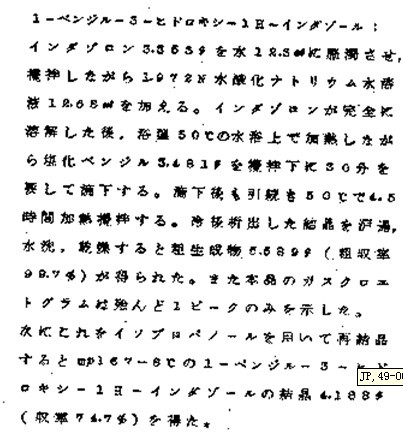 1-ベンジル-3-ヒドロキシ-1H-インダゾール:
インダゾロン3.353gを水12.5mlに懸濁させ,
攪拌しながら1.972N水酸化ナトリウム水溶
液12.68mlを加える。インダゾロンが完全に
溶解した後,浴温50℃の水浴上で加熱しなが
ら塩化ベンジル3.481gを攪拌下に30分を
要して滴下する。滴下後も引続き50℃で4.5
時間加熱攪拌する。冷後析出した結晶を沪過,
水洗,乾燥すると粗生成物5.589g(粗収率
99.7%)が得られた。また本品のガスクロマ
トグラムは殆んど1ピークのみを示した。
次にこれをイソプロパノールを用いて再結晶
するとmp167-8℃の1-ベンジル-3-ヒド
ロキシ-1H-インダゾールの結晶4.188g
(収率74.7%)を得た。
JP, 49-0